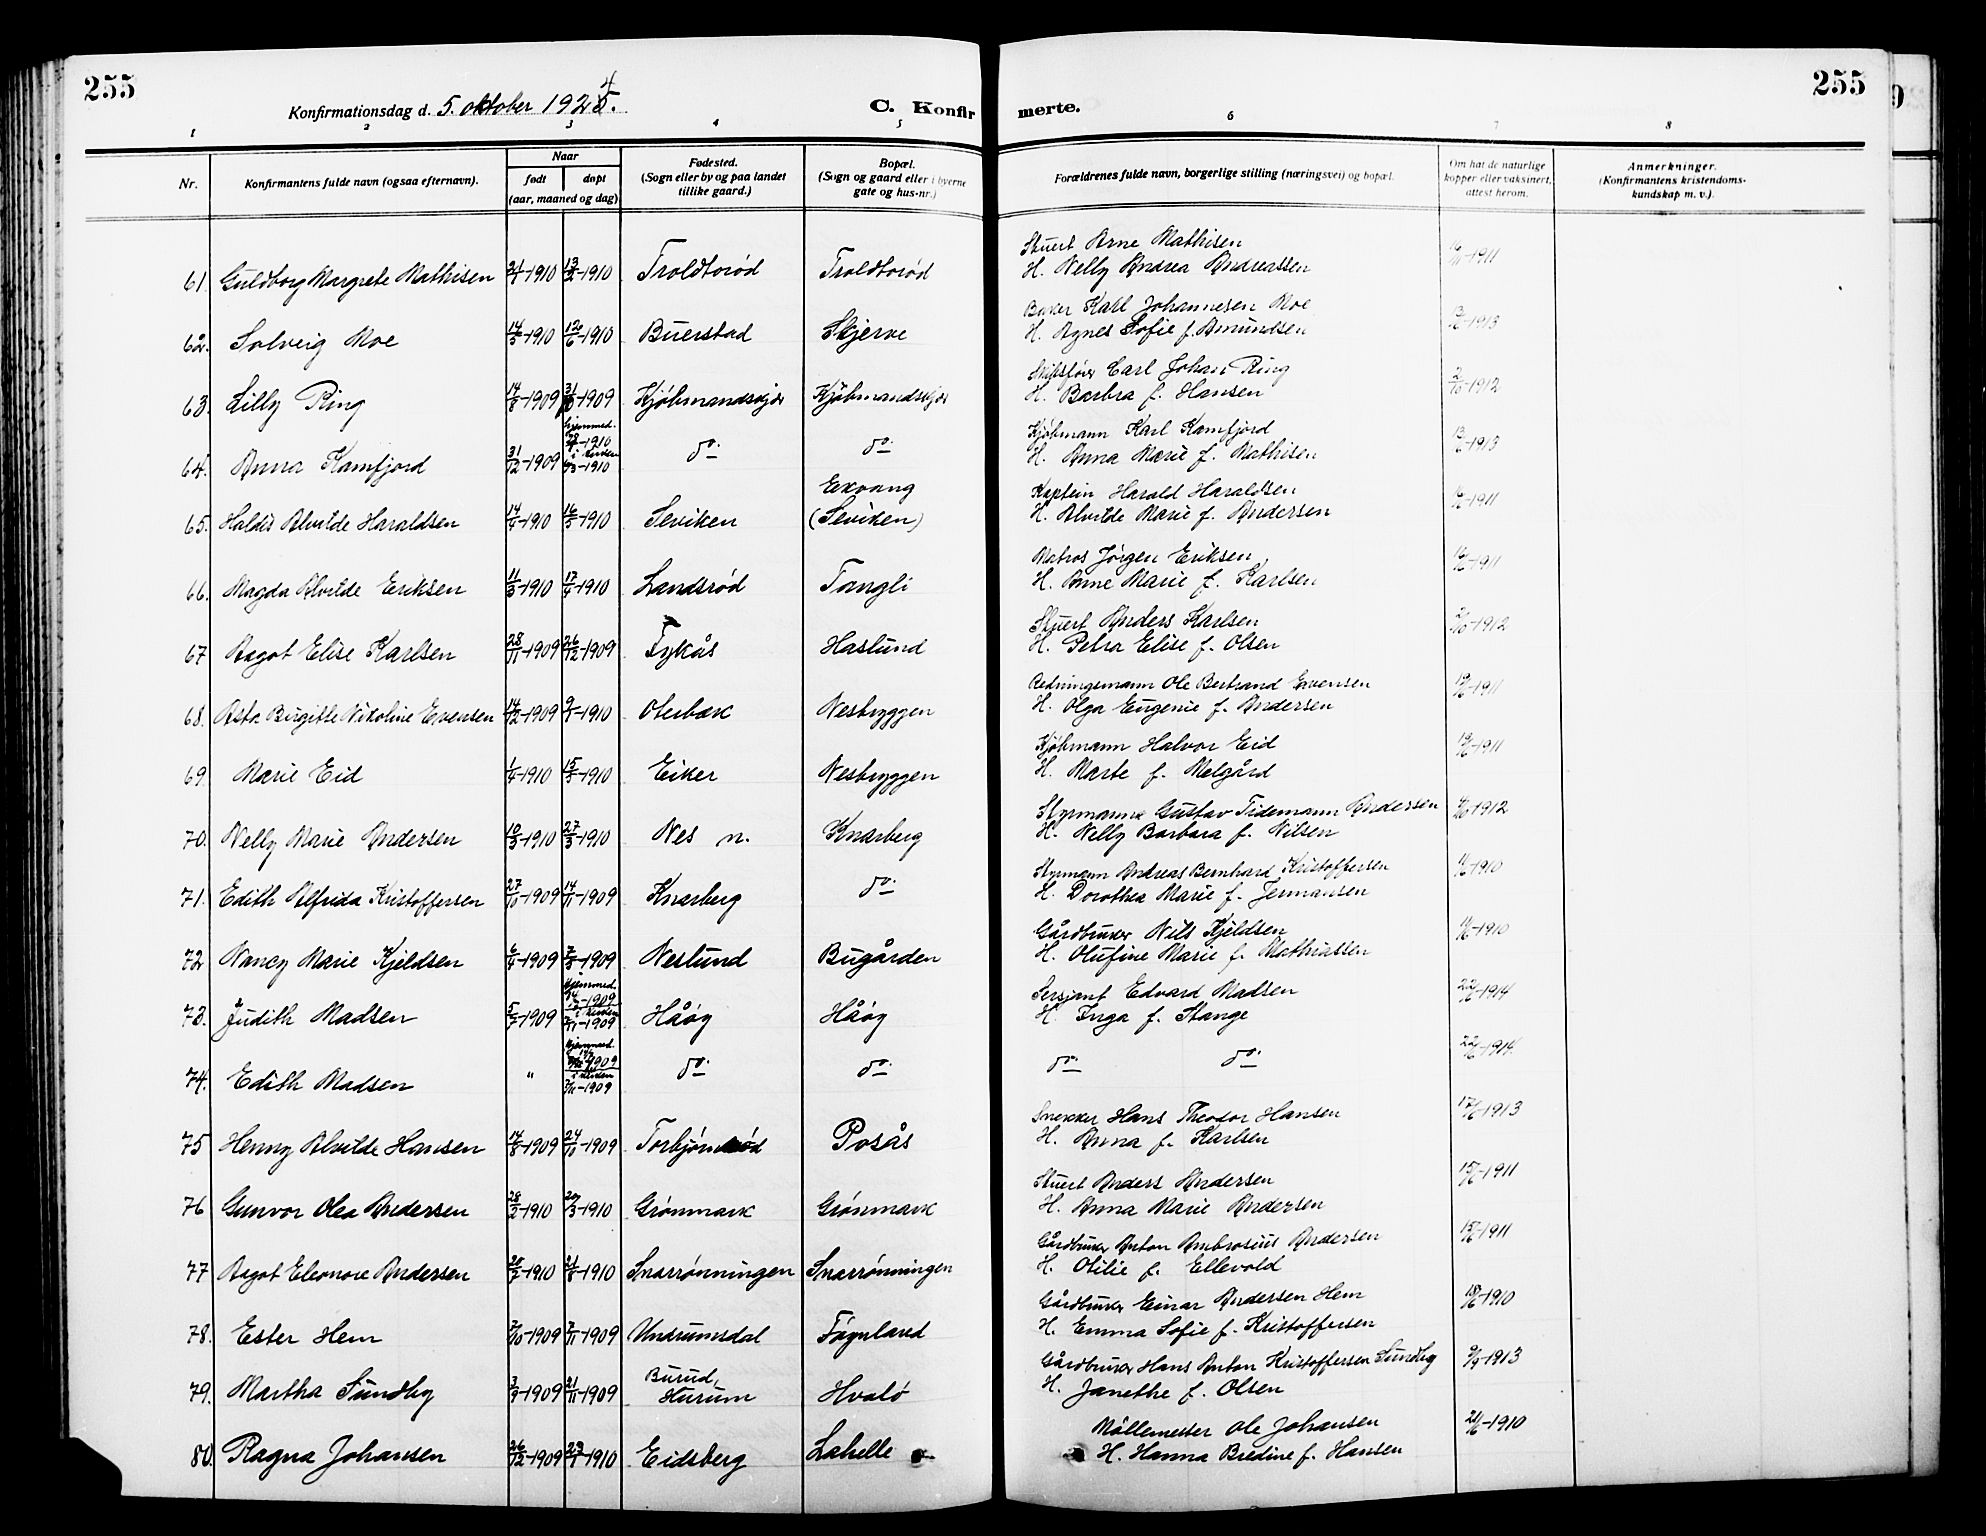 255
255
Konfirmationsdag d. 5. oktober 1924.
C. Konfir merte.
1 2 3 4 5 6 7 8
Nr.
Konfirmantens fulde navn (ogsaa efternavn).
Naar
født
døpt
(aar, maaned og dag)
Fødested.
(Sogn eller by og paa landet
tillike gaard.)
Bopæl.
(Sogn og gaard eller i byerne
gate og hus-nr.)
Forældrenes fulde navn, borgerlige stilling (næringsvei) og bopæl.
Om hat de naturlige
kopper eller vaksinert,
attest herom.
Anmerkninger.
(Konfirmantens kristendoms-
kundskap m. v.).
Stuert Arne Mathisen
61. Guldborg Margrete Mathisen 21/1-1910 13/2-1910 Troldtorød Troldtorød H. Nelly Andrea Andreassen 16/11-1911
Baker Karl Johannesen Moe
62. Solveig Moe 14/5-1910 12/6-1910 Buerstad Skjerve H. Agnes Sofie f. Amundsen 13/6-1913
Skibsfører Carl Johan Ring
63. Lilly Ring 14/8-1909 31/10-1909 Kjøbmandskjær Kjøbmandskjær H. Barbra f. Hansen 2/10-1912
hjemmed.
Kjøbmann Karl Kamfjord
i kirken
64. Anna Kamfjord 31/12-1909 -1910 do. do. H. Anna Marie f. Mathisen 13/6-1913
Ekvang
Kaptein Harald Haraldsen
65. Haldis Alvilde Haraldsen 14/4-1910 16/5-1910 Seviken (Seviken) H. Alvilde Marie f. Andersen 16/6-1911
Matros Jørgen Eriksen
66. Magda Alvilde Eriksen 11/3-1910 17/4-1910 Landsrød Tangli H. Anne Marie f. Karlsen 16/6-1911
Stuert Anders Karlsen
67 Aagot Elise Karlsen 28/11-1909 26/12-1909 Tykås Haslund H. Petra Elise f. Olsen 2/10-1912
Redningsmann Ole Bertrand Evensen
68. Asta Birgitte Nikoline Evensen 14/12-1909 9/1-1910 Oterbæk Nesbryggen H. Olga Eugenie f. Andersen 19/6-1911
Kjøbmann Halvor Eid
69. Marie Eid 1/4-1910 15/5-1910 Eiker Nesbryggen H. Marte f. Melgård 19/6-1911
Styrmann Gustav Tidemann Andersen
70. Nelly Marie Andersen 10/3-1910 27/3-1910 Nes n. Knarberg H. Nelly Barbara f. Nilsen -1912
Styrmann Andreas Bernhard Kristoffersen
71. Edith Alfrida Kristoffersen 27/10-1909 14/11-1909 Knarberg do. H. Dorothea Marie f. Jermansen 11/6-1910
Gårdbruker Nils Kjeldsen
72 Nancy Marie Kjeldsen 6/4-1909 7/8-1909 Neslund Bugården H. Olufine Marie f. Mathiassen 11/6-1910
hjemmed.
-1909
i kirken
Sersjant Edvard Madsen
73. Judith Madsen 5/7-1909 7/11-1909 Håøy Håøy H. Inga f. Stange 22/6-1914
hjemmed.
-1909
i kirken
74. Edith Madsen " 7/11-1909 do. do. do. do. 22/6-1914
Snekker Hans Theodor Hansen
75 Henny Alvilde Hansen 14/8-1909 24/10-1909 Torbjørnrød Posås H. Anna f. Karlsen 17/6-1913
Stuert Anders Andersen
76 Gunvor Olea Andersen 28/2-1910 20/3-1910 Grønmark Grønmark H. Anna Marie Andersen 15/6-1911
Gårdbruker Anton Ambrosius Andersen
77 Aagot Eleonore Andersen 20/7-1910 21/8-1910 Snarrønningen Snarrønningen H. Otilie f. Ellevold 15/6-1911
Gårdbruker Einar Andersen Hem
78. Ester Hem 7/10-1909 7/11-1909 Undrumsdal Føynland H. Emma Sofie f. Kristoffersen 18/6-1910
Burud,
Gårdbruker Hans Anton Kristoffersen Sundby
79. Martha Sundby 3/9-1909 21/11-1909 Hurum Hvalø H. Janethe f. Olsen 9/9-1913
Møllemester Ole Johansen
80. Ragna Johansen 26/12-1909 23/1-1910 Eidsberg Lahelle H. Hanna Bredine f. Hansen 21/6-1910